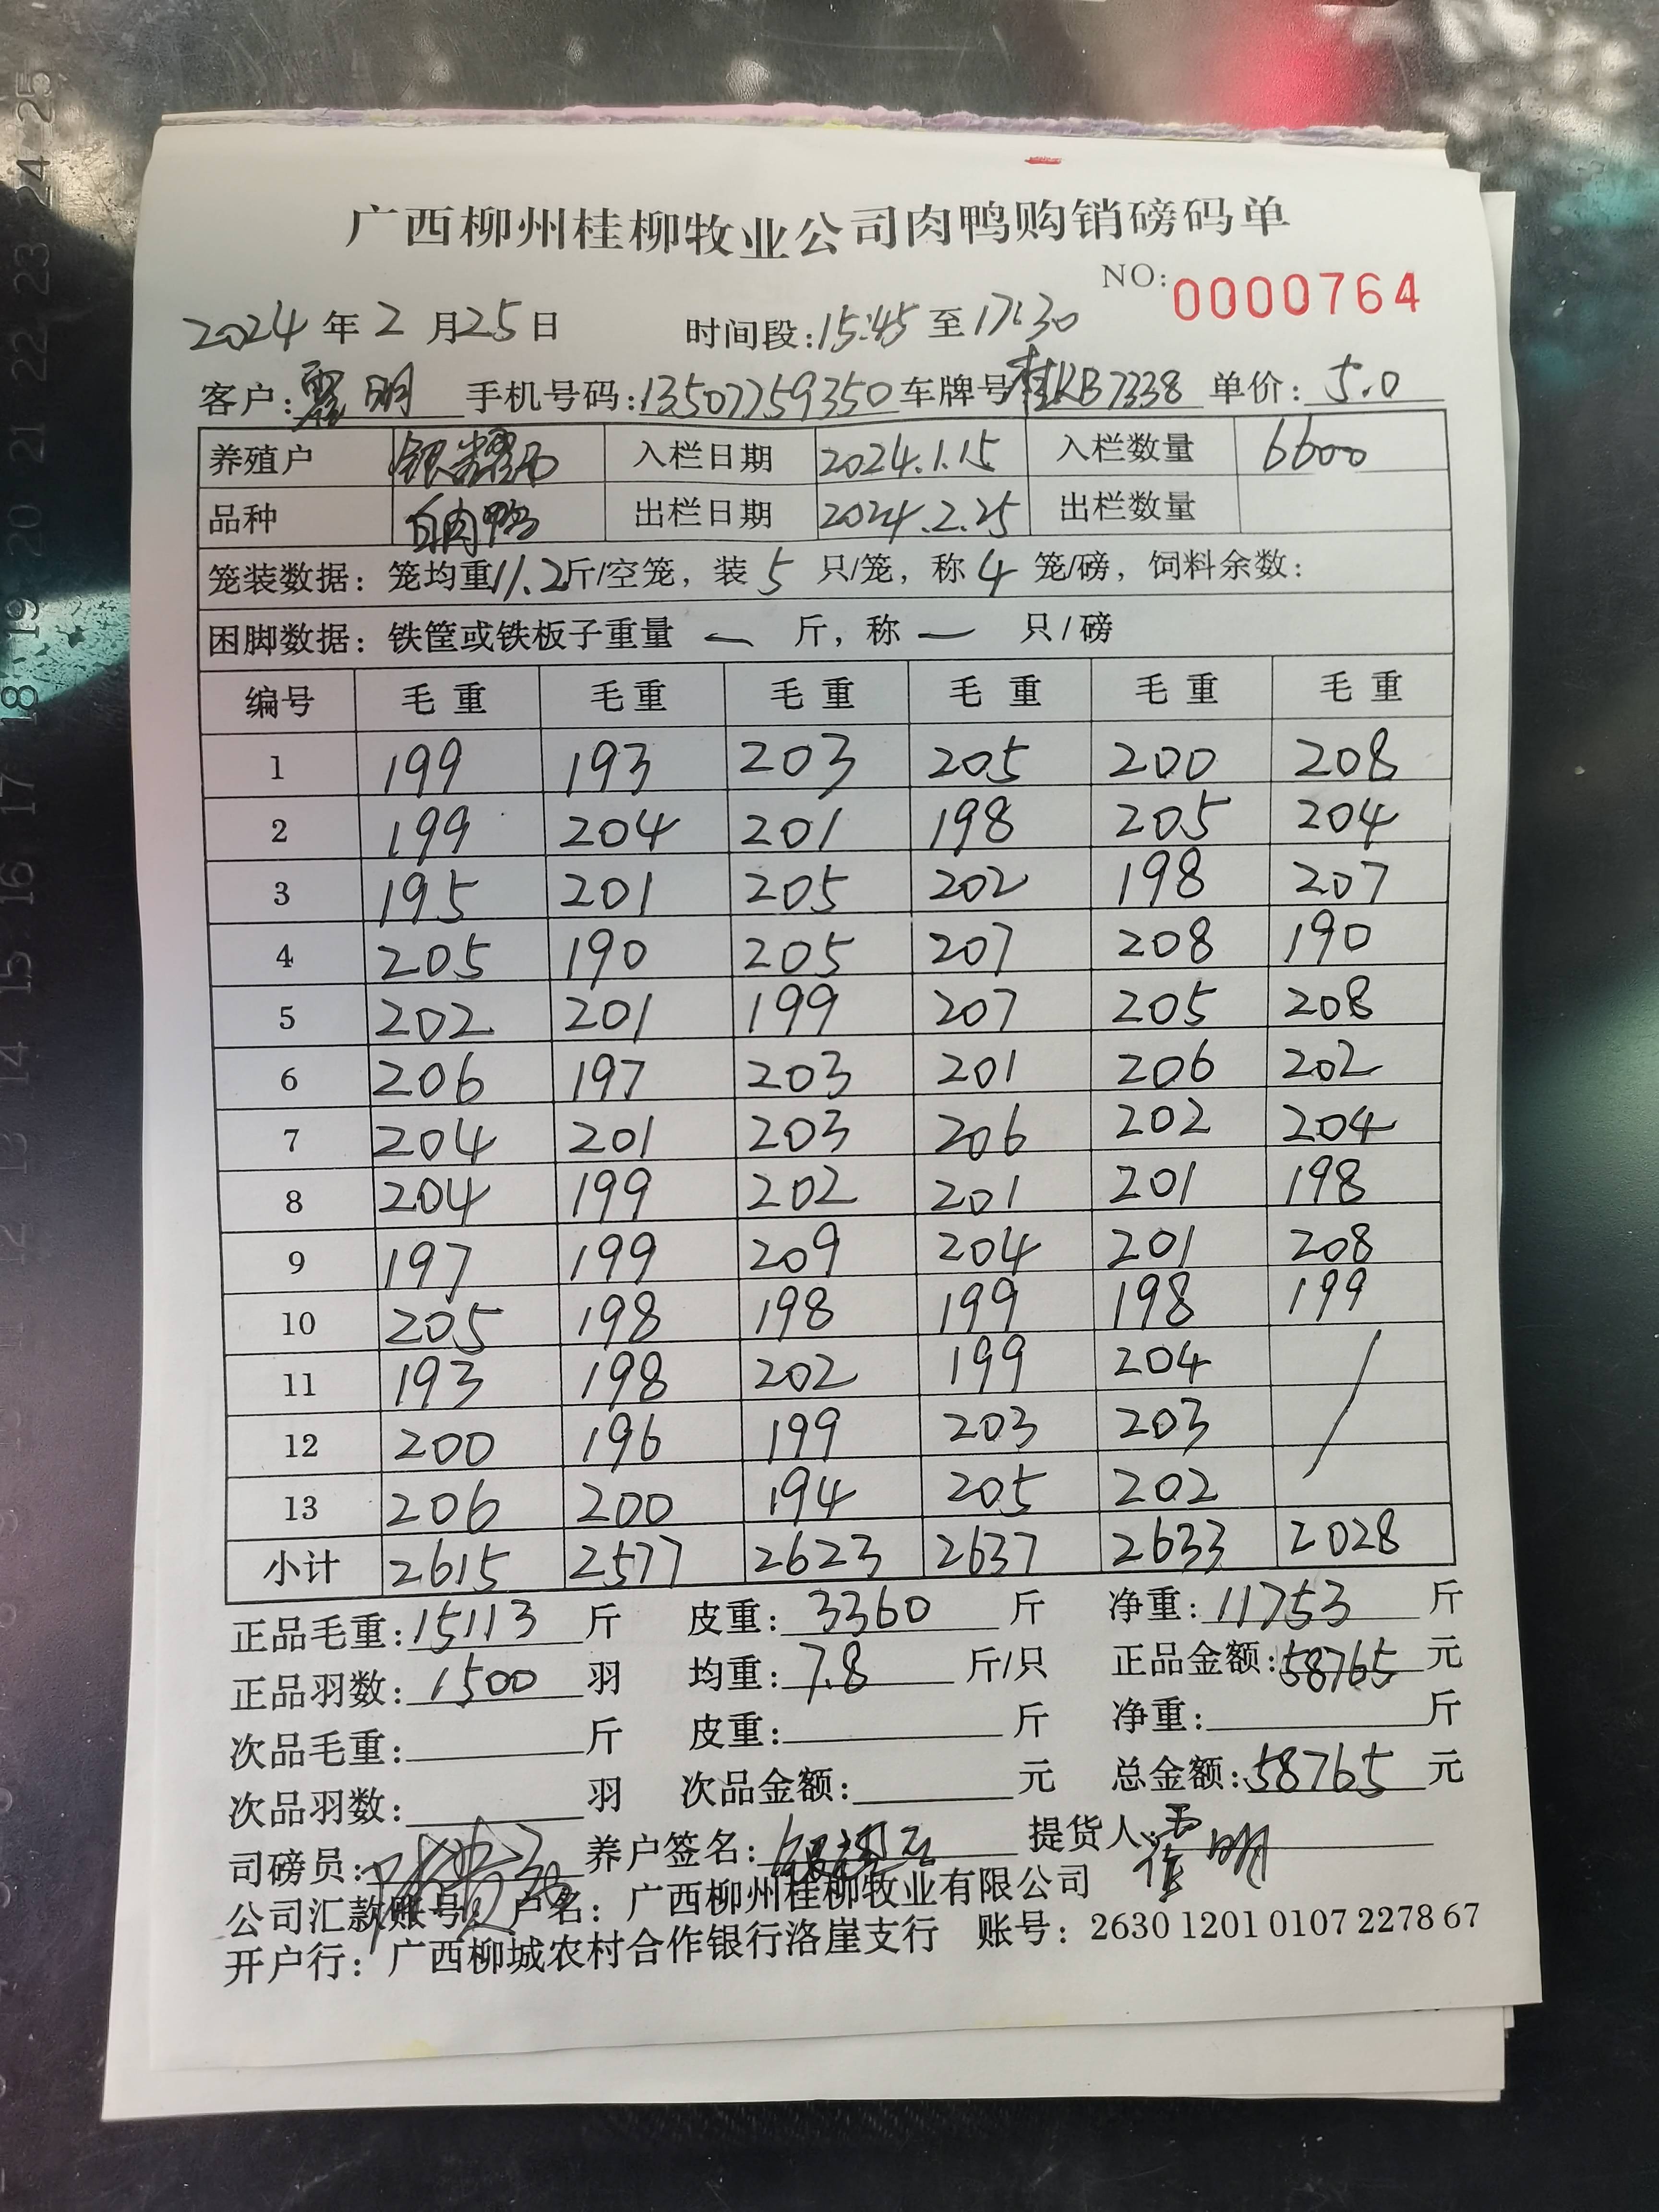 广西柳州桂柳牧业公司肉鸭购销磅码单
NO: 0000764
2024 年 2 月 25 日 时间段: 15:45 至 17:30
客户: 明 手机号码: 13507759350 车牌号 桂KB7338 单价: 5.0
养殖户 银 入栏日期 2024.1.15 入栏数量 6600
品种 白肉鸭 出栏日期 2024.2.25 出栏数量
笼装数据: 笼均重 11.2 斤/空笼, 装 5 只/笼, 称 4 笼/磅, 饲料余数:
困脚数据: 铁筐或铁板子重量 — 斤, 称 — 只/磅
编号 毛重 毛重 毛重 毛重 毛重 毛重
1 199 193 203 205 200 208
2 199 204 201 198 205 204
3 195 201 205 202 198 207
4 205 190 205 207 208 190
5 202 201 199 207 205 208
6 206 197 203 201 206 202
7 204 201 203 206 202 204
8 204 199 202 201 201 198
9 197 199 209 204 201 208
10 205 198 198 199 198 199
11 193 198 202 199 204 /
12 200 196 199 203 203
13 206 200 194 205 202
小计 2615 2577 2623 2637 2633 2028
正品毛重: 15113 斤 皮重: 3360 斤 净重: 11753 斤
正品羽数: 1500 羽 均重: 7.8 斤/只 正品金额: 58765 元
次品毛重: 斤 皮重: 斤 净重: 斤
次品羽数: 羽 次品金额: 元 总金额: 58765 元
司磅员: 养户签名: 银 提货人: 明
公司汇款账号: 户名: 广西柳州桂柳牧业有限公司
开户行: 广西柳城农村合作银行洛崖支行 账号: 2630 1201 0107 2278 67